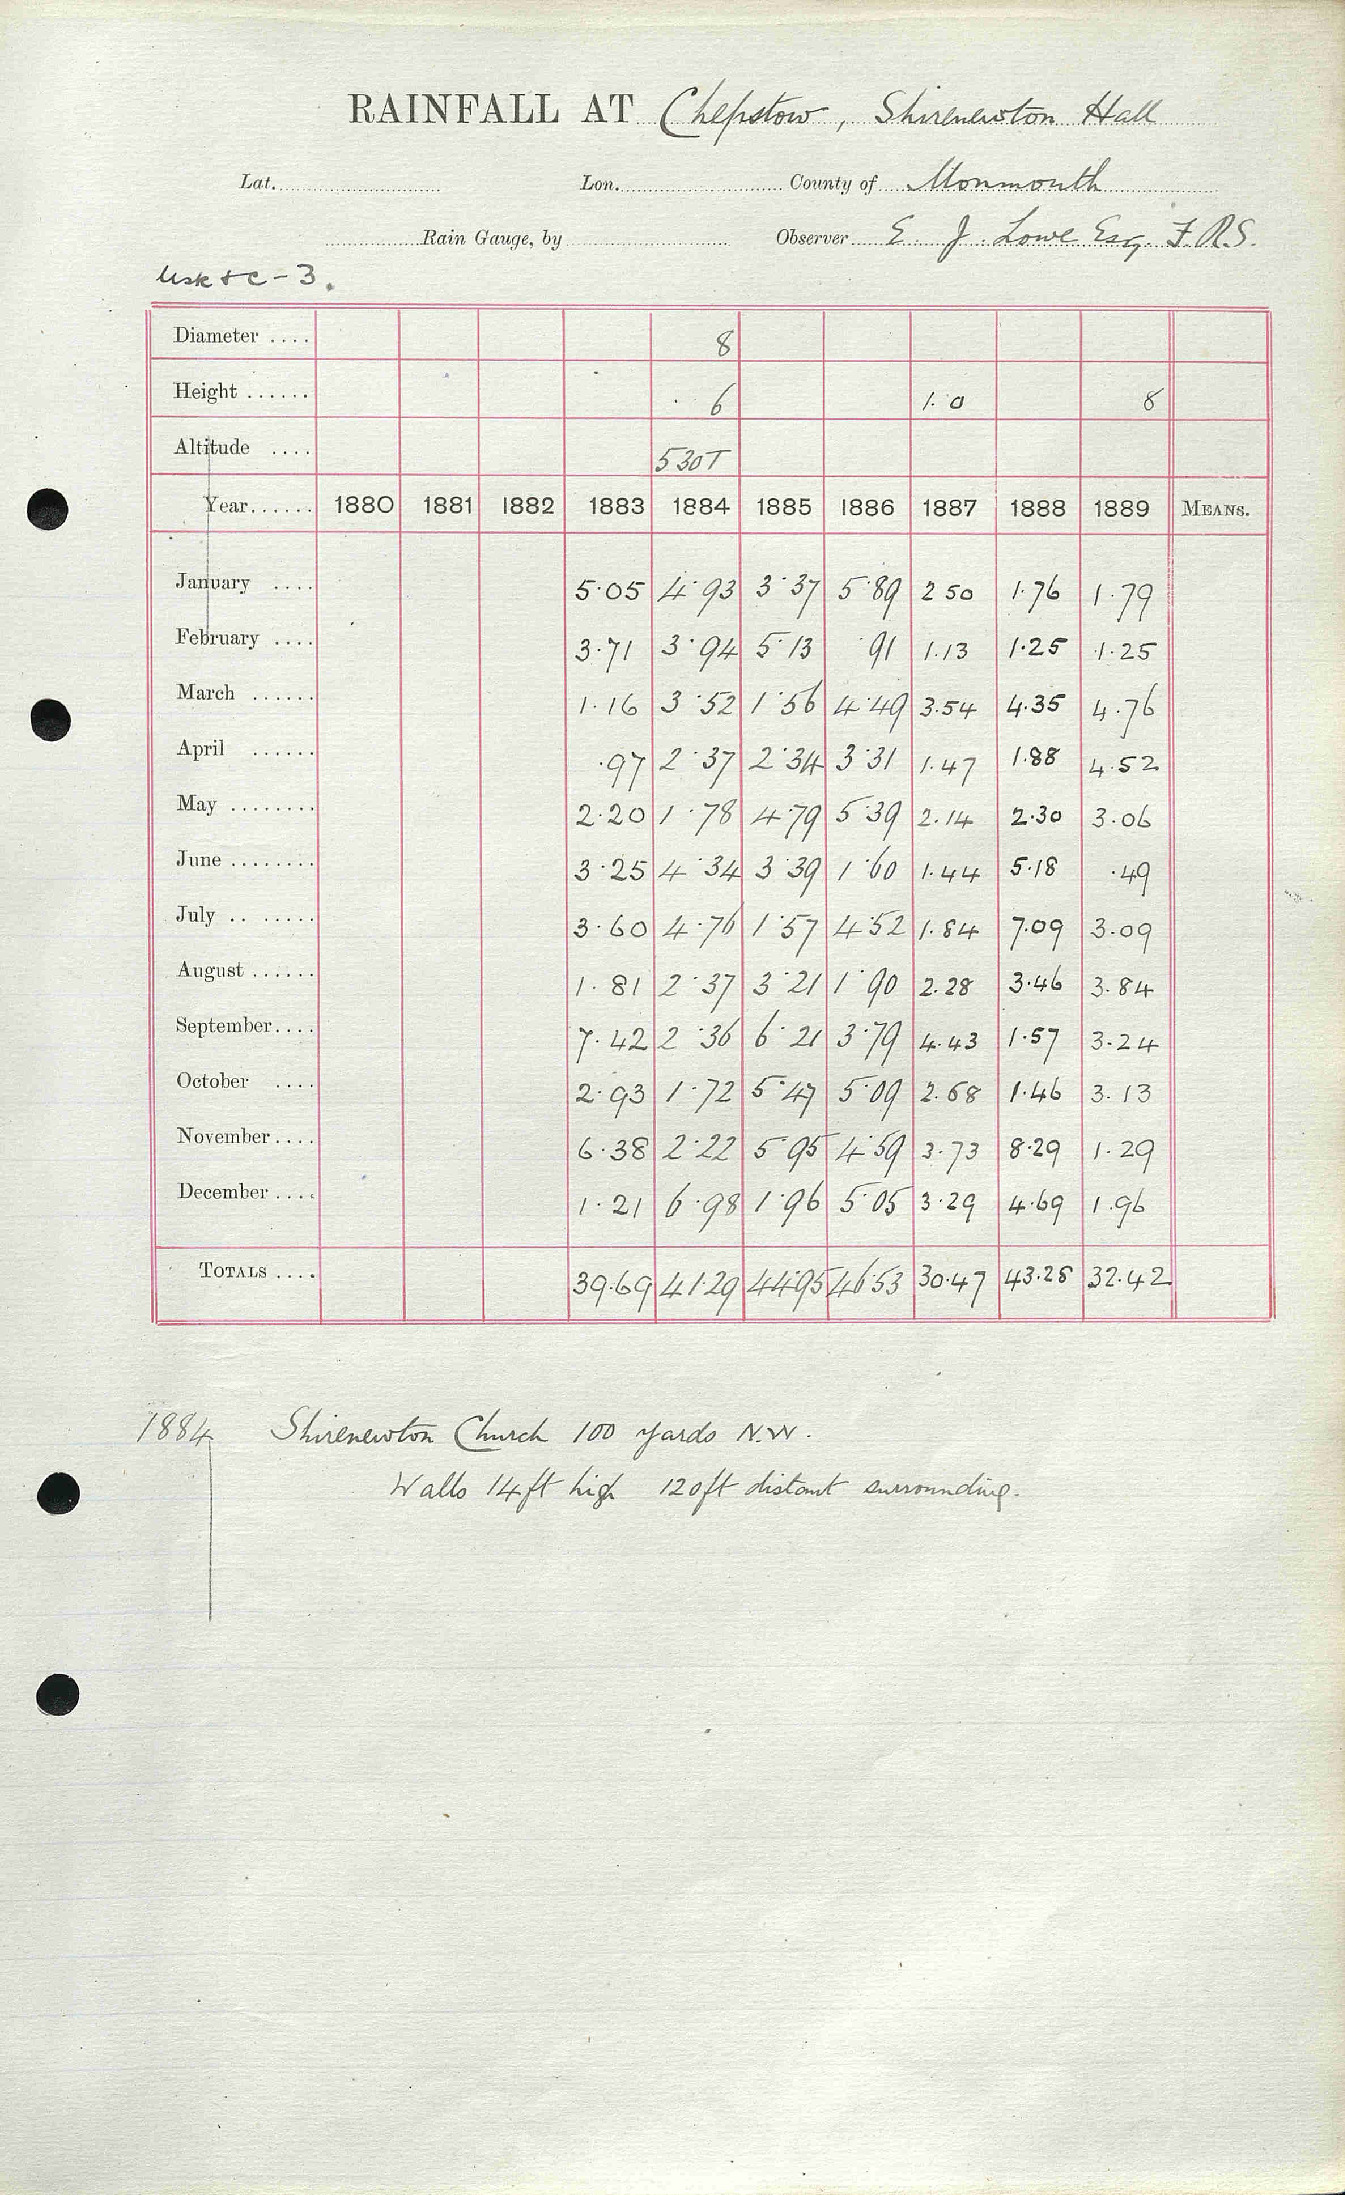 RAINFALL AT Chepstow, Shirenewton Hall
Lat. Lon. County of Monmouth
Rain Gauge, by Observer E. J. Lowe Esq. F.R.S.
Usk & C - 3.
Diameter .... 8
Height ...... 6 1.0 8
Altitude .... 530T
Year...... 1880 1881 1882 1883 1884 1885 1886 1887 1888 1889 MEANS.
January .... 5.05 4.93 3.37 5.89 2 50 1.76 1.79
February .... 3.71 3.94 5.13 91 1.13 1.25 1.25
March ...... 1.16 3.52 1.56 4.49 3.54 4.35 4.76
April ...... .97 2.37 2.34 3.31 1.47 1.88 4.52
May ........ 2.20 1.78 4.79 5.39 2.14 2.30 3.06
June ........ 3.25 4.34 3.39 1.60 1.44 5.18 .49
July .. ..... 3.60 4.76 1.57 4.52 1.84 7.09 3.09
August ...... 1.81 2.37 3.21 1.90 2.28 3.46 3.84
September.... 7.42 2.36 6.21 3.79 4.43 1.57 3.24
October .... 2.93 1.72 5.47 5.09 2.68 1.46 3.13
November.... 6.38 2.22 5.95 4.59 3.73 8.29 1.29
December .... 1.21 6.98 1.96 5.05 3.29 4.69 1.96
TOTALS .... 39.69 41.29 44.95 46.53 30.47 43.28 32.42
1884 Shirenewton Church 100 yards N.W.
Walls 14ft high 120ft distant surrounding.